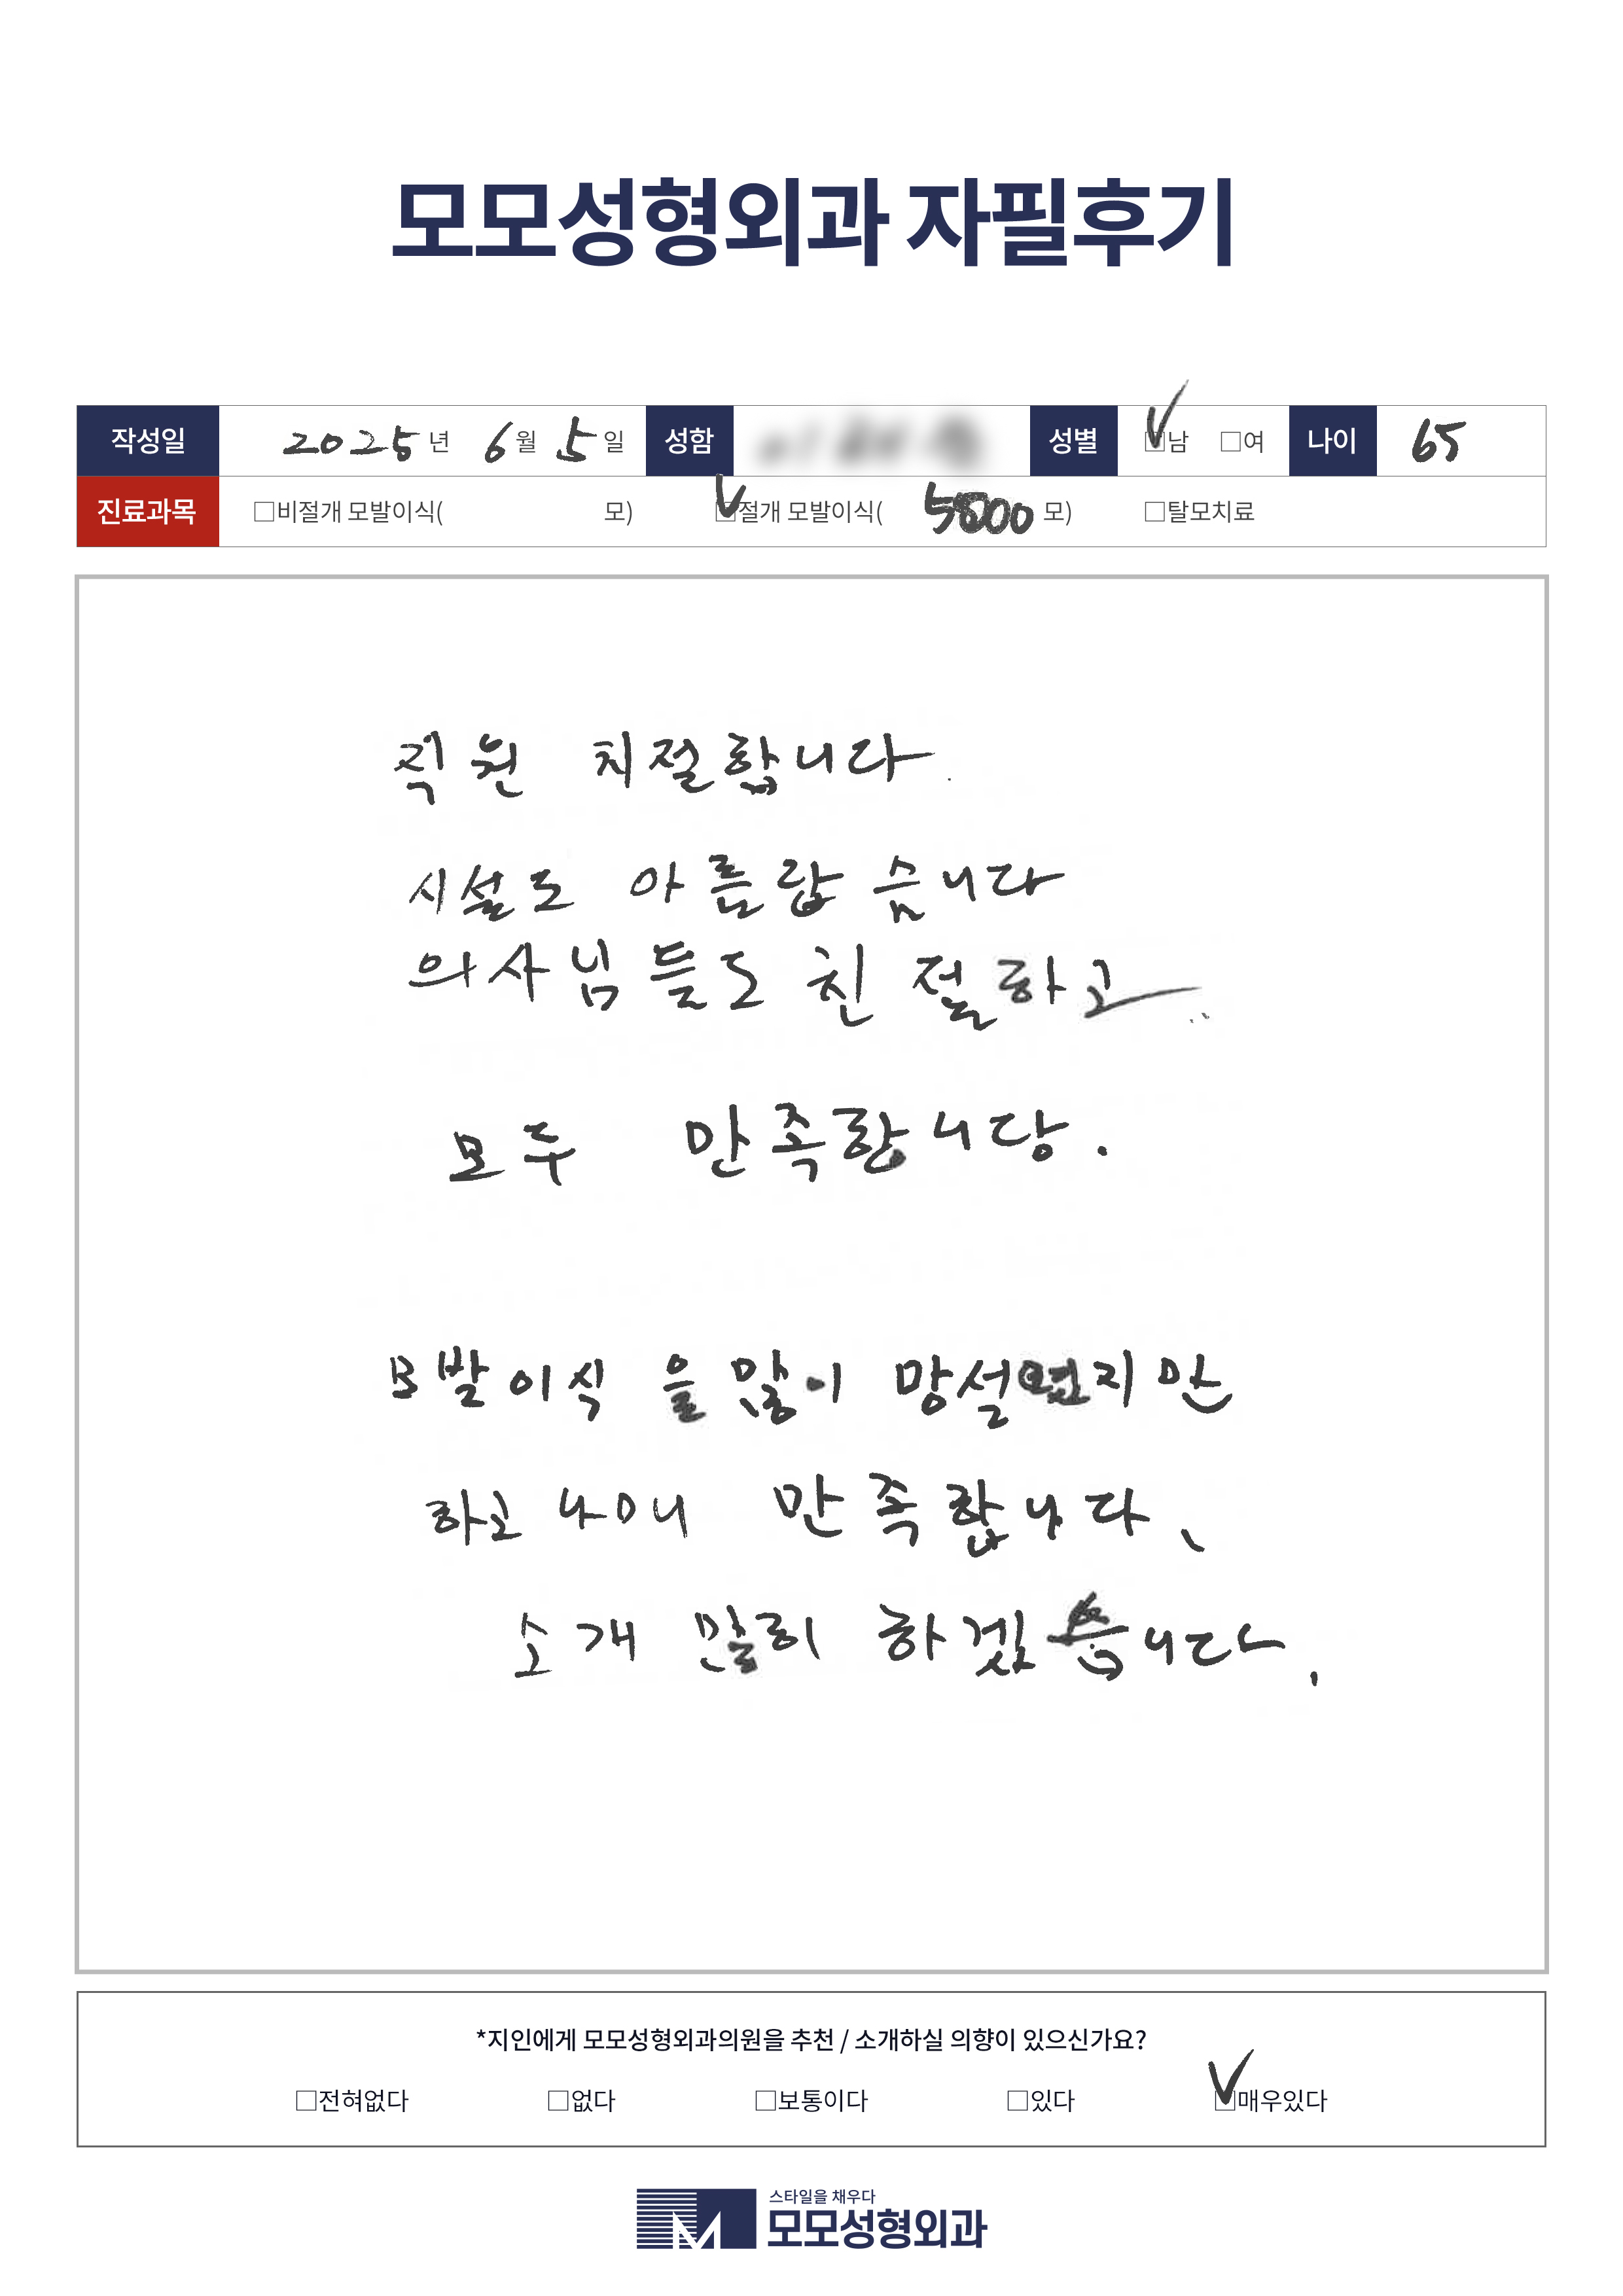 모모성형외과 자필후기
작성일 2025년 6월 5일 성함 성별 ☑남 □여 나이 65
진료과목 □비절개 모발이식( 모) ☑절개 모발이식( 5800 모) □탈모치료
직원 치절합니다.
시설도 아름랍습니다
의사님들도 친절하고
모두 만족항니당.
모발이식을 많이 망설였지만
하고 나머니 만족합니다.
소개 많히 하겠습니다.
*지인에게 모모성형외과의원을 추천 / 소개하실 의향이 있으신가요?
□전혀없다 □없다 □보통이다 □있다 ☑매우있다
스타일을 채우다
모모성형외과